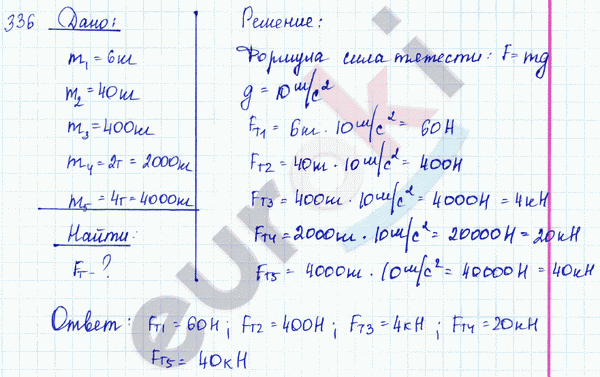 336 Дано:
m₁ = 6кг
m₂ = 40кг
m₃ = 400кг
m₄ = 2т = 2000кг
m₅ = 4т = 4000кг
Найти:
Fт - ?
Решение:
Формула сила тяжести: F = mg
g = 10 м/с²
Fт1 = 6кг · 10 м/с² = 60Н
Fт2 = 40кг · 10 м/с² = 400Н
Fт3 = 400кг · 10 м/с² = 4000Н = 4кН
Fт4 = 2000кг · 10 м/с² = 20000Н = 20кН
Fт5 = 4000кг · 10 м/с² = 40000Н = 40кН
Ответ: Fт1 = 60Н ; Fт2 = 400Н ; Fт3 = 4кН ; Fт4 = 20кН
Fт5 = 40кН
euroki